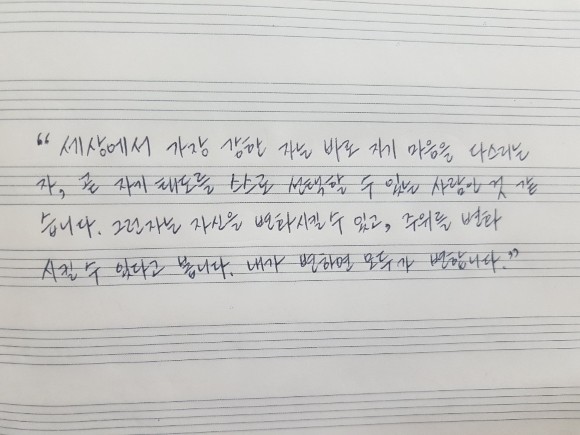 “세상에서 가장 강한 자는 바로 자기 마음을 다스리는
자, 곧 자기 태도를 스스로 선택할 수 있는 사람인 것 같
습니다. 그런자는 자신을 변화시킬 수 있고, 주위를 변화
시킬 수 있다고 봅니다. 내가 변하면 모두가 변합니다.”